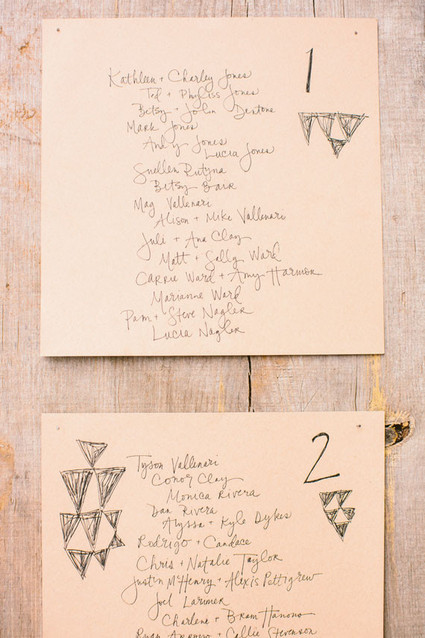 1
Kathleen + Charley Jones
Ted + Phyliss Jones
Betsy + John Dentone
Mark Jones
Andy Jones
Lucia Jones
Suellen Rutyna
Betsy Barr
Mag Vallenari
Alison + Mike Vallenari
Juli + Ana Clay
Matt + Sally Ward
Carrie Ward + Amy Harmon
Marianne Ward
Pam + Steve Nagler
Lucia Nagler
2
Tyson Vallenari
Conor Clay
Monica Rivera
Dan Rivera
Alyssa + Kyle Dykes
Rodrigo + Candace
Chris + Natalie Taylor
Justin McHenry + Alexis Pettigrew
Joel Larimer
Charlene + Bram Hanono
Ryan + Callie Stevenson